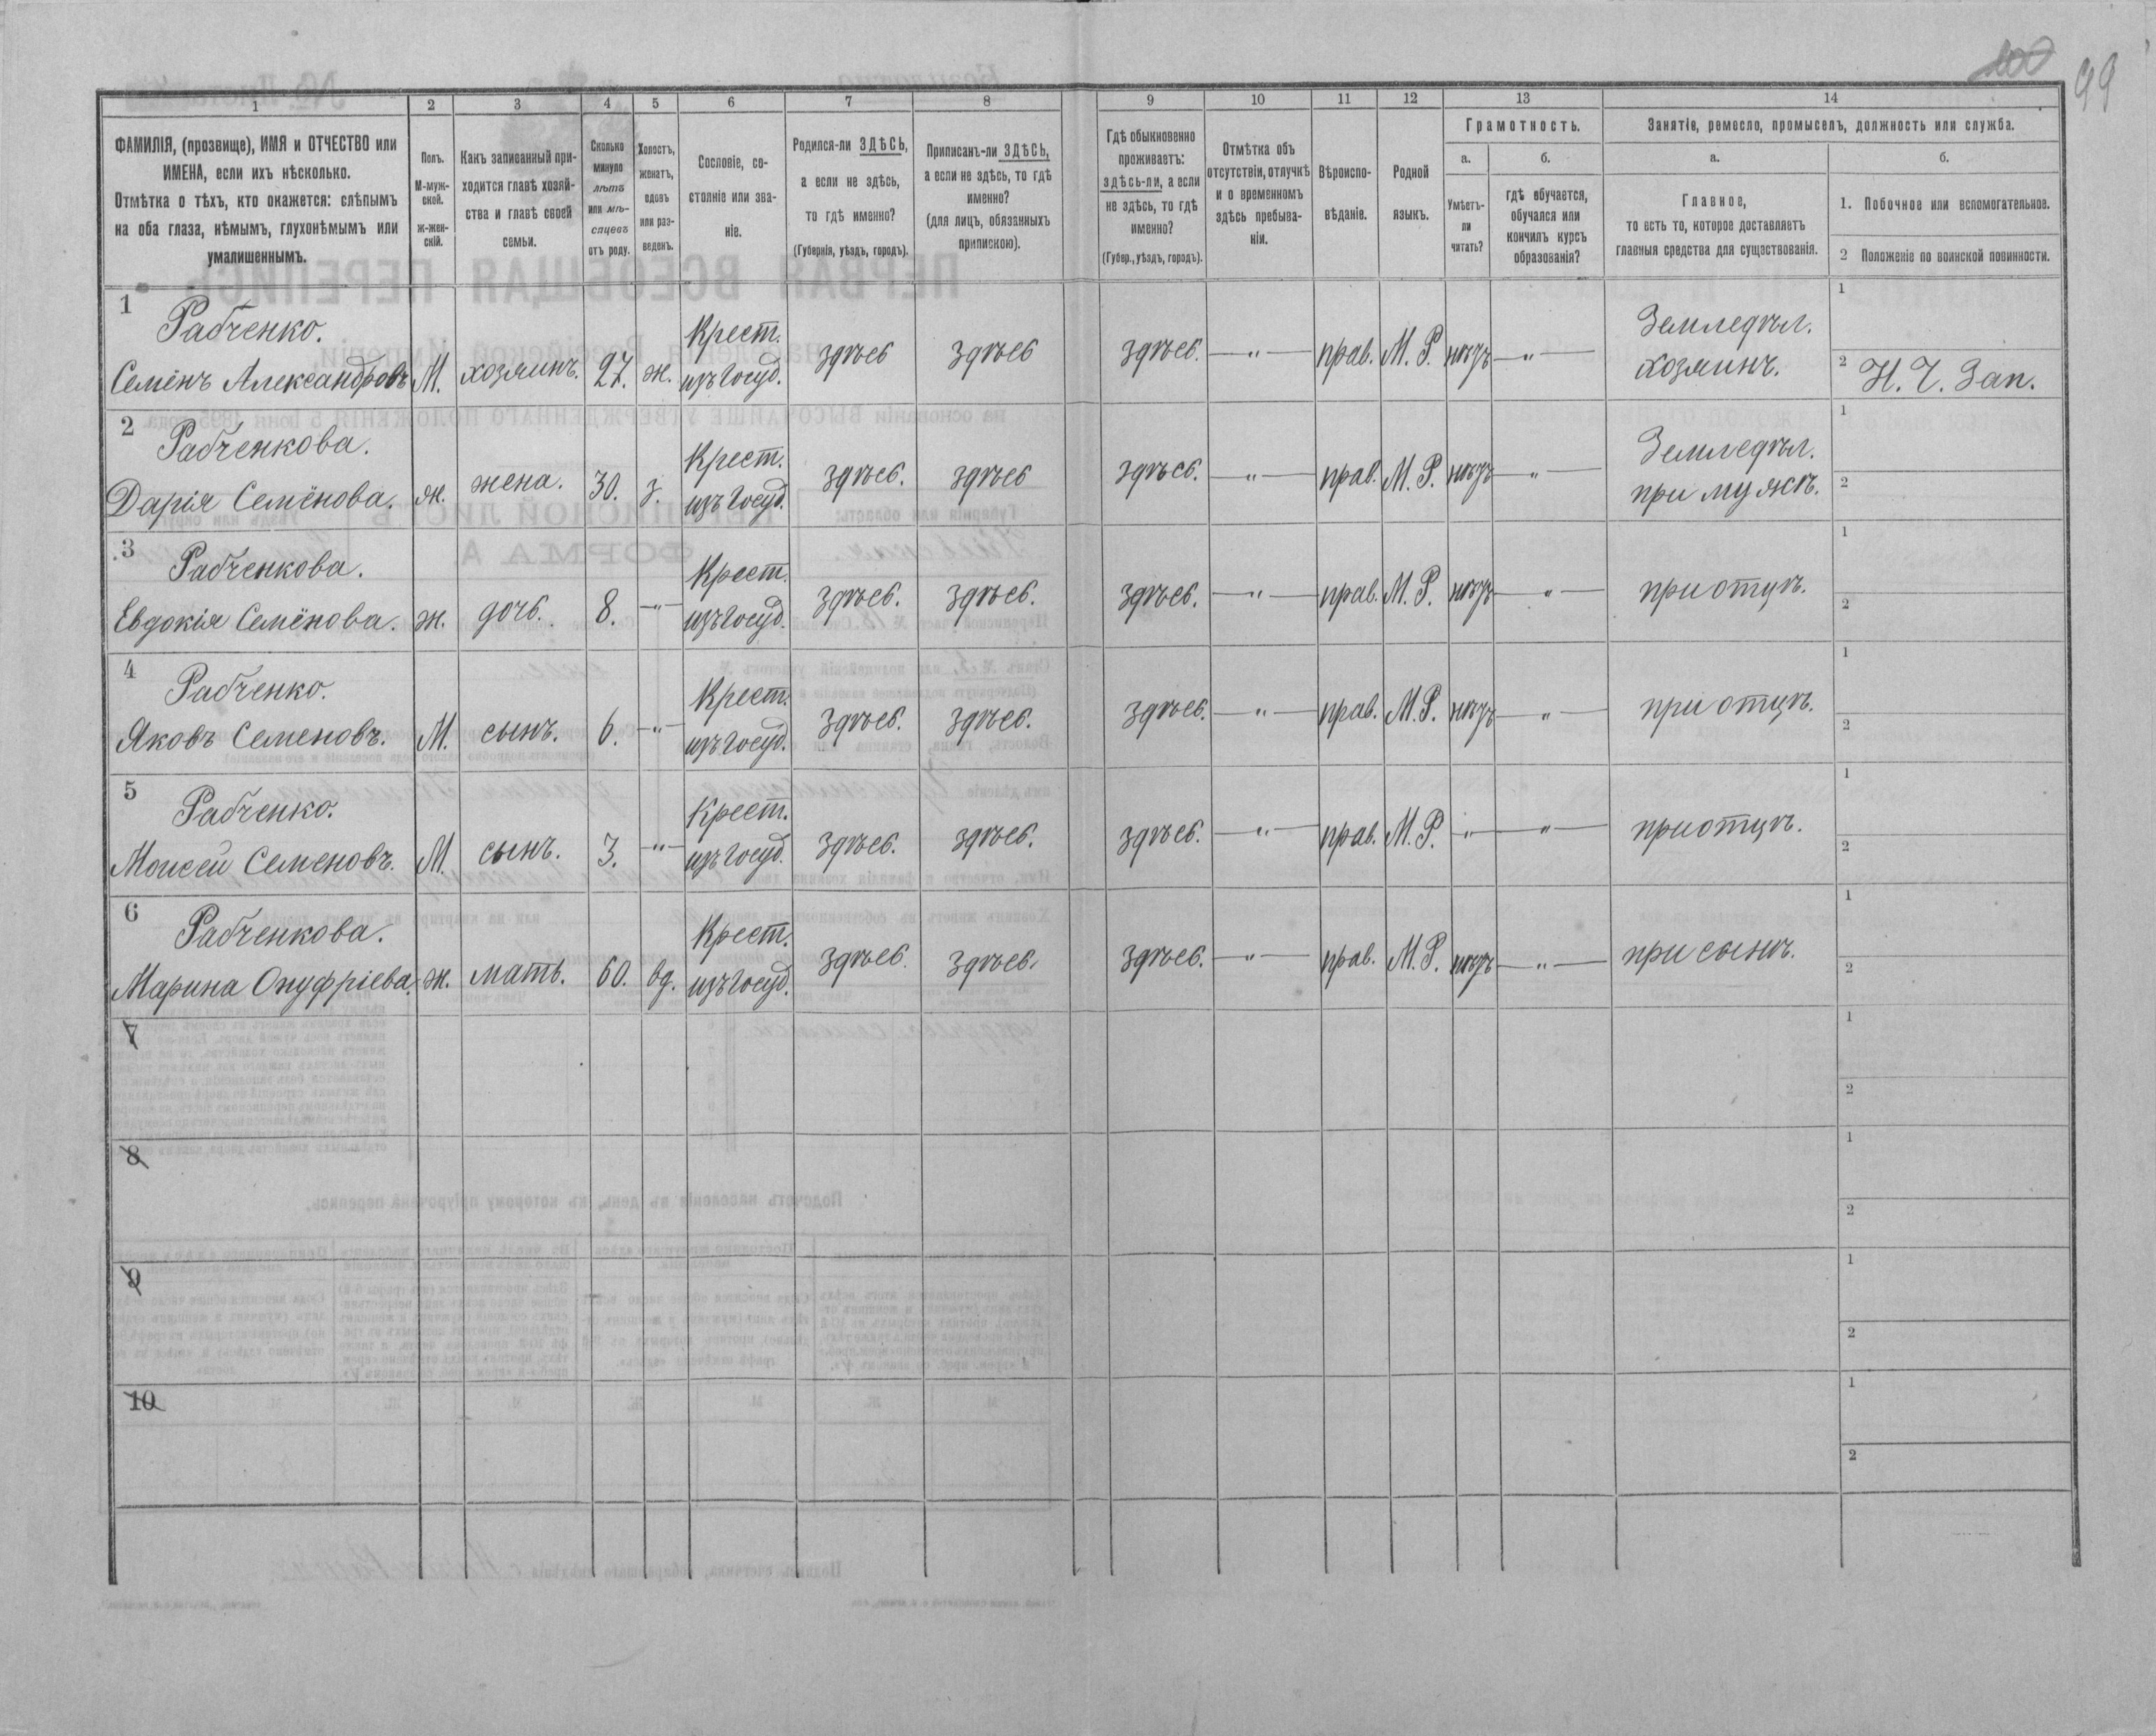 100 99
1 2 3 4 5 6 7 8 9 10 11 12 13 14
ФАМИЛІЯ, (прозвище), ИМЯ и ОТЧЕСТВО или
ИМЕНА, если ихъ нѣсколько.
Отмѣтка о тѣхъ, кто окажется: слѣпымъ
на оба глаза, нѣмымъ, глухонѣмымъ или
умалишеннымъ.
Полъ.
М-муж-
ской.
ж-жен-
скій.
Какъ записанный при-
ходится главѣ хозяй-
ства и главѣ своей
семьи.
Сколько
минуло
лѣтъ
или мѣ-
сяцевъ
отъ роду.
Холостъ,
женатъ,
вдовъ
или раз-
веденъ.
Сословіе, со-
стояніе или зва-
ніе.
Родился-ли ЗДѢСЬ,
а если не здѣсь,
то гдѣ именно?
(Губернія, уѣздъ, городъ).
Приписанъ-ли ЗДѢСЬ,
а если не здѣсь, то гдѣ
именно?
(для лицъ, обязанныхъ
припискою).
Гдѣ обыкновенно
проживаетъ:
здѣсь-ли, а если
не здѣсь, то гдѣ
именно?
(Губер., уѣздъ, городъ).
Отмѣтка объ
отсутствіи, отлучкѣ
и о временномъ
здѣсь пребыва-
ніи.
Вѣроиспо-
вѣданіе.
Родной
языкъ.
Грамотность.
а.
Умѣетъ-
ли
читать?
б.
гдѣ обучается,
обучался или
кончилъ курсъ
образованія?
Занятіе, ремесло, промыселъ, должность или служба.
а.
Главное,
то есть то, которое доставляетъ
главныя средства для существованія.
б.
1. Побочное или вспомогательное.
2 Положеніе по воинской повинности.
1 Рабченко. Крест. Земледѣл. 1
Семёнъ Александровъ М. хозяинъ. 27. ж. изъ Госуд. здѣсь здѣсь здѣсь. —"— прав. М. Р. нѣтъ —"— хозяинъ. 2 Н. Ч. Зап.
2 Рабченкова. Крест. Земледѣл. 1
Дарія Семёнова. ж. жена. 30. з. изъ Госуд. здѣсь. здѣсь здѣсь. —"— прав. М. Р. нѣтъ —"— при мужѣ. 2
3 Рабченкова. Крест. 1
Евдокія Семёнова. ж. дочь. 8. —"— изъ Госуд. здѣсь. здѣсь. здѣсь. —"— прав. М. Р. нѣтъ —"— при отцѣ. 2
4 Рабченко. Крест. 1
Яковъ Семеновъ. М. сынъ. 6. —"— изъ Госуд. здѣсь. здѣсь. здѣсь. —"— прав. М. Р. нѣтъ —"— при отцѣ. 2
5 Рабченко. Крест. 1
Моисей Семеновъ. М. сынъ. 3. —"— изъ Госуд. здѣсь. здѣсь. здѣсь. —"— прав. М. Р. —"— —"— при отцѣ. 2
6 Рабченкова. Крест. 1
Марина Онуфріева. ж. мать. 60. вд. изъ Госуд. здѣсь. здѣсь. здѣсь. —"— прав. М. Р. нѣтъ —"— при сынѣ. 2
7 1
2
8 1
2
9 1
2
10 1
2